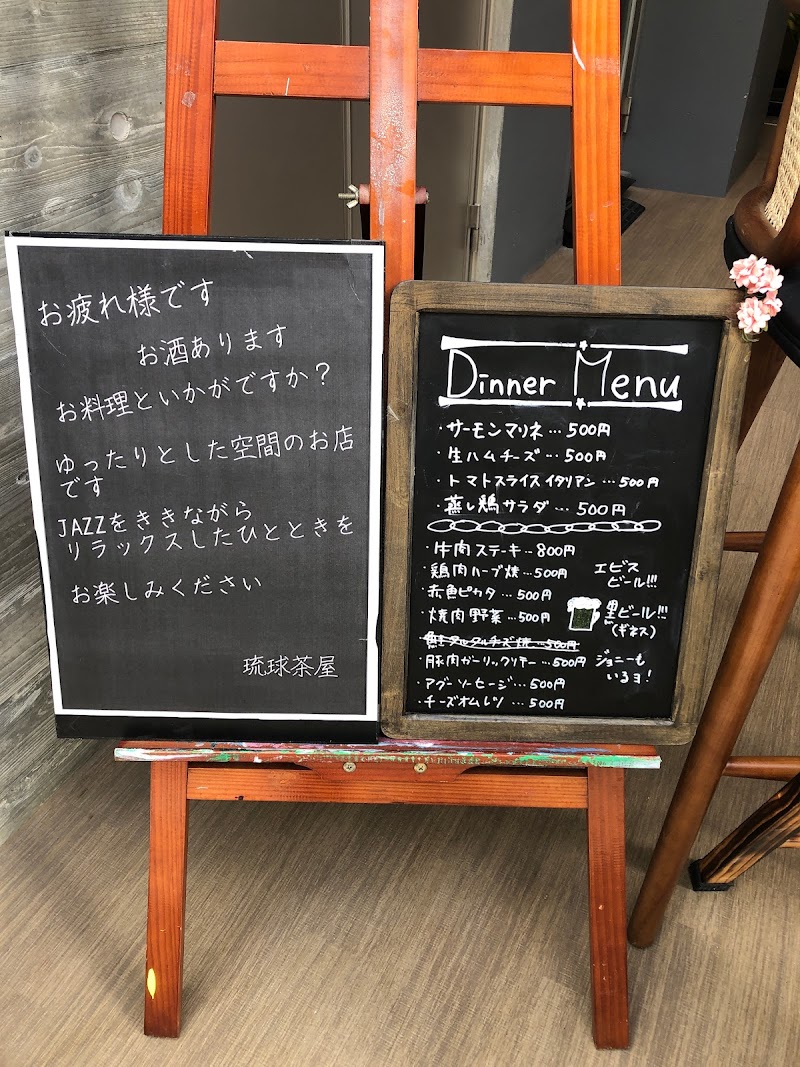 お疲れ様です
お酒あります
お料理といかがですか？
ゆったりとした空間のお店
です
JAZZをききながら
リラックスしたひとときを
お楽しみください
琉球茶屋
Dinner Menu
・サーモンマリネ…500円
・生ハムチーズ…500円
・トマトスライスイタリアン…500円
・蒸し鶏サラダ…500円
・牛肉ステーキ…800円
・鶏肉ハーブ焼…500円
・赤魚ピカタ…500円
・焼肉野菜…500円
タルタルチーズ焼…500円
・豚肉ガーリックソテー…500円
・アグーソーセージ…500円
・チーズオムレツ…500円
エビス
ビール!!!
黒ビール!!!
(ギネス)
ジョニーも
いるヨ!